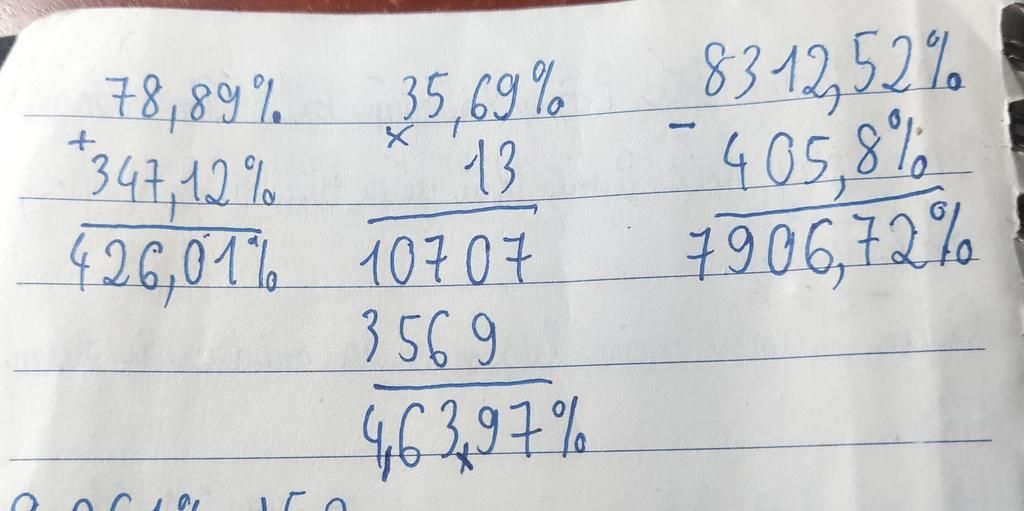 78,89%
+
347,12%
426,01%
35,69%
×
13
10707
3569
4,63,97%
8312,52%
-
405,8%
7906,72%